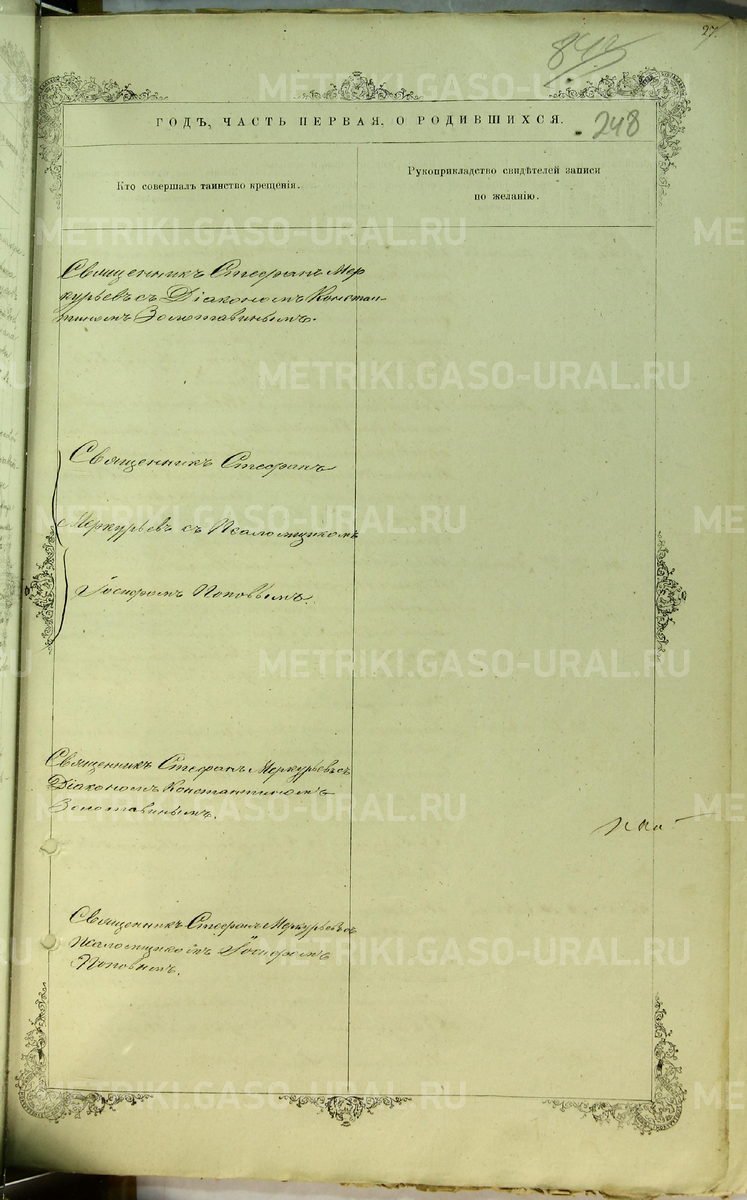 27.
248
ГОДЪ, ЧАСТЬ ПЕРВАЯ, О РОДИВШИХСЯ.
Кто совершалъ таинство крещенія.
Рукоприкладство свидѣтелей записи
по желанію.
Священникъ Стефанъ Мер
курьевъ съ Діакономъ Констан-
тиномъ Золотавинымъ.
Священникъ Стефанъ
Меркурьевъ съ Псаломщикомъ
Іосифомъ Поповымъ.
Священникъ Стефанъ Меркурьевъ съ
Діакономъ Константиномъ
Золотавинымъ.
Священникъ Стефанъ Меркурьевъ съ
Псаломщикомъ Іосифомъ
Поповымъ.
METRIKI.GASO-URAL.RU